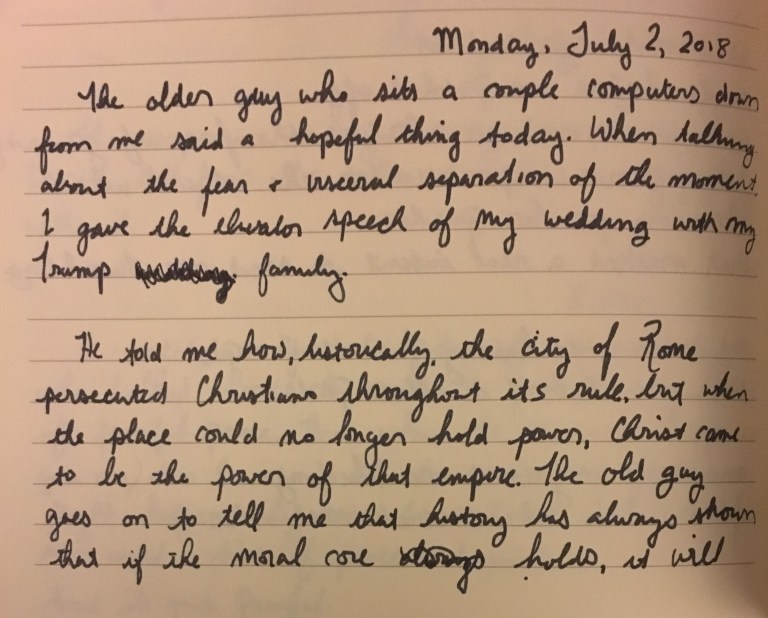 Monday, July 2, 2018
The older guy who sits a couple computers down
from me said a hopeful thing today. When talking
about the fear & visceral separation of the moment.
I gave the elevator speech of my wedding with my
Trump family.
He told me how, historically, the city of Rome
persecuted Christians throughout its rule, but when
the place could no longer hold power, Christ came
to be the power of that empire. The old guy
goes on to tell me that history has always shown
that if the moral core holds, it will